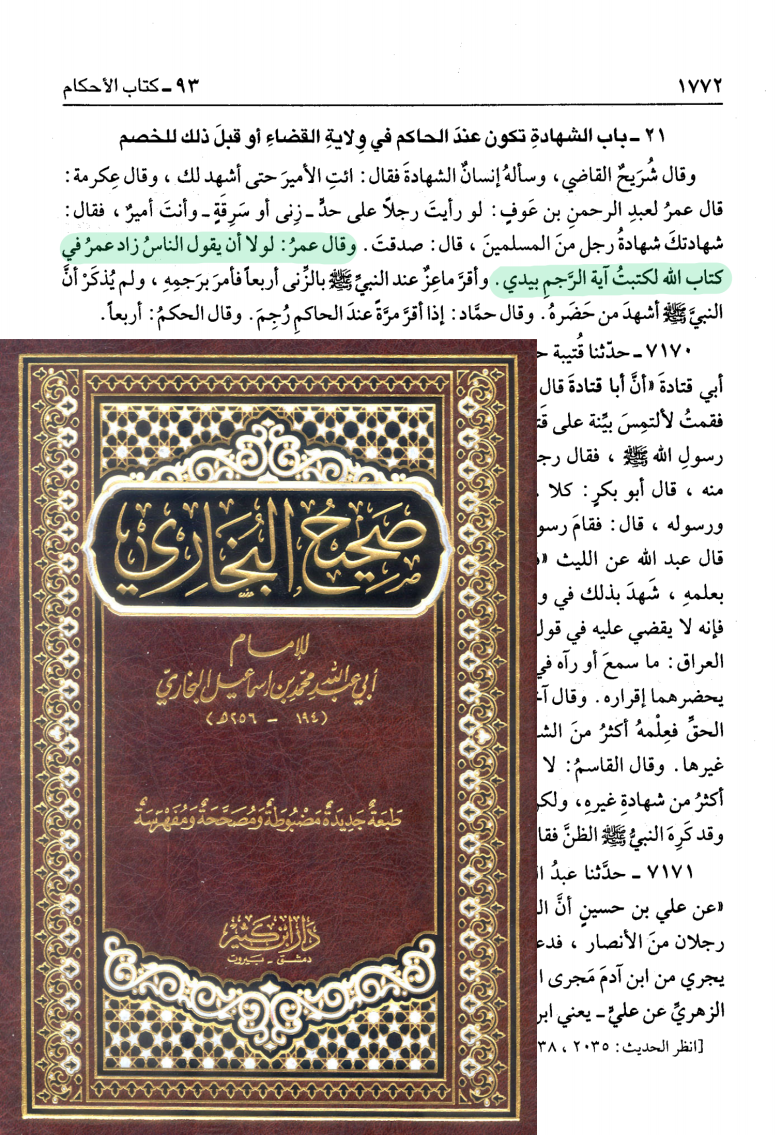 ١٧٧٢
٩٣ ـ كتاب الأحكام
٢١ ـ باب الشهادةِ تكون عندَ الحاكم في وِلايةِ القضاءِ أو قبلَ ذلك للخصم
وقال شُرَيحٌ القاضي، وسألهُ إنسانٌ الشهادةَ فقال: ائتِ الأميرَ حتى أشهد لك، وقال عِكرمة:
قال عمرُ لعبدِ الرحمنِ بن عَوفٍ: لو رأيتَ رجلاً على حدٍّ ـ زِنى أو سَرِقَةٍ ـ وأنتَ أميرٌ، فقال:
شهادتكَ شهادةُ رجل منَ المسلمينَ، قال: صدقتَ. وقال عمرُ: لولا أن يقول الناسُ زاد عمرُ في
كتاب الله لكتبتُ آية الرَّجمِ بيدي. وأقرَّ ماعِزٌ عند النبيِّ ﷺ بالزِّنى أربعاً فأمرَ برَجمِهِ، ولم يُذكَرْ أنَّ
النبيَّ ﷺ أشهدَ من حَضَرهُ. وقال حمَّاد: إذا أقرَّ مرَّةً عندَ الحاكمِ رُجِمَ. وقال الحكمُ: أربعاً.
٧١٧٠ ـ حدّثنا قُتيبة
أبي قتادةَ «أنَّ أبا قتادةَ قال
فقمتُ لألتمِسَ بيِّنة على
رسولِ الله ﷺ، فقال
منه، قال أبو بكرٍ: كلا
ورسوله، قال: فقامَ
قال عبد الله عن الليث
بعلمهِ، شَهدَ بذلك في
فإنه لا يقضي عليه في
العراق: ما سمعَ أو رآه في
يحضرهما إقراره. وقال
الحقِّ فعِلْمهُ أكثرُ منَ
غيرها. وقال القاسمُ: لا
أكثرُ من شهادةِ غيرهِ،
وقد كَرِهَ النبيُّ ﷺ الظنَّ
٧١٧١ ـ حدَّثنا عبدُ
«عن علي بن حسينٍ أنَّ
رجلان منَ الأنصار،
يجري من ابن آدمَ مَجرى
الزهريِّ عن عليٍّ ـ يعني
[انظر الحديث: ٢٠٣٥،
صَحِيحُ البُخَارِي
للإمام
أبي عبد الله محمد بن اسماعيل البخاريّ
(١٩٤ - ٢٥٦هـ)
طَبعَةٌ جَديدَةٌ مَضْبُوطَةٌ وَمُصَحَّحَةٌ وَمُفَهْرَسَةٌ
دار ابن كثير
دمشق - بيروت